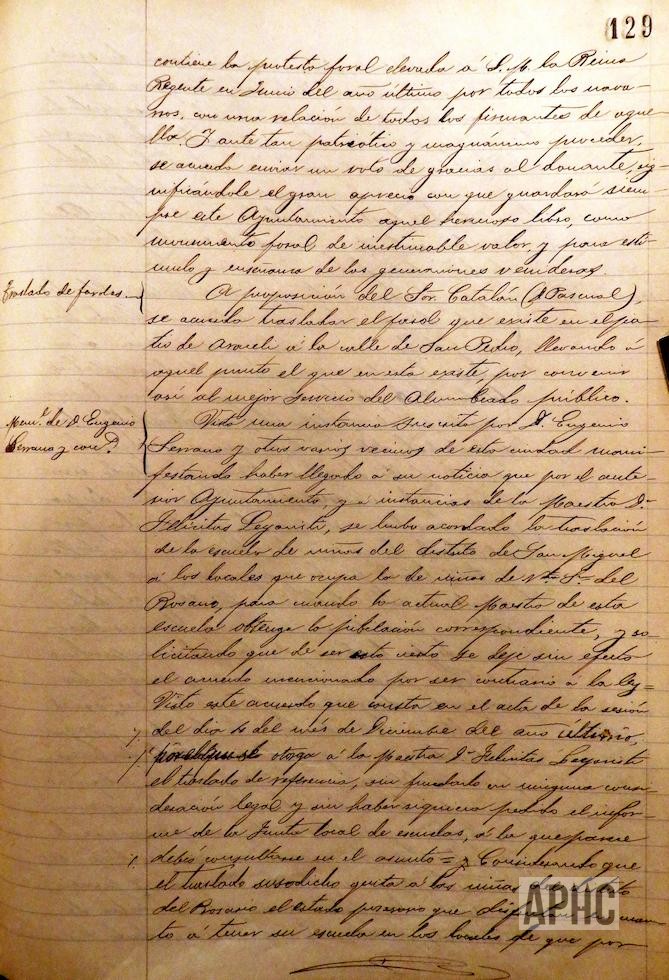 129
contiene la protesta foral elevada á S. M. la Reina
Regente en Junio del año último por todos los nava-
rros, con una relación de todos los firmantes de aque-
lla. Y ante tan patriótico y magnánimo proceder,
se acuerda enviar un voto de gracias al donante, sig-
nificándole el gran aprecio con que guardará siem
pre este Ayuntamiento aquel hermoso libro, como
monumento foral de inestimable valor, y para estí-
mulo y enseñanza de las generaciones venideras.
Traslado de faroles.
A proposición del Sor. Catalán (D Pascual),
se acuerda trasladar el farol que existe en el pa-
tio de Araceli á la calle de San Pedro, llevando á
aquel punto el que en esta existe, por convenir
así al mejor servicio del Alumbrado público.
de D. Eugenio
Serrano y
Vista una instancia suscrita por D. Eugenio
Serrano y otros varios vecinos de esta ciudad mani-
festando haber llegado á su noticia que por el ante-
rior Ayuntamiento y á instancias de la Maestra Dª
Felícitas, se hubo acordado la traslación
de la escuela de niñas del distrito de San Miguel
á los locales que ocupa la de niñas de Ntra. Sra. del
Rosario, para cuando la actual Maestra de esta
escuela obtenga la jubilación correspondiente, y so
licitando que de ser esto cierto se deje sin efecto
el acuerdo mencionado por ser contrario á la ley=
Visto este acuerdo que consta en el acta de la sesión
del dia 4 del mes de Diciembre del año último,
otorga á la Maestra Dª Felícitas
el traslado de referencia, sin fundarlo en ninguna consi-
deración legal y sin haber siquiera pedido el infor-
me de la Junta local de escuelas, á la que parece
debió consultarse en el asunto = y Considerando que
el traslado susodicho quita á las niñas del distrito
del Rosario el estado posesorio que disfrutan en cuan
to á tener su escuela en los locales de que por
APHC